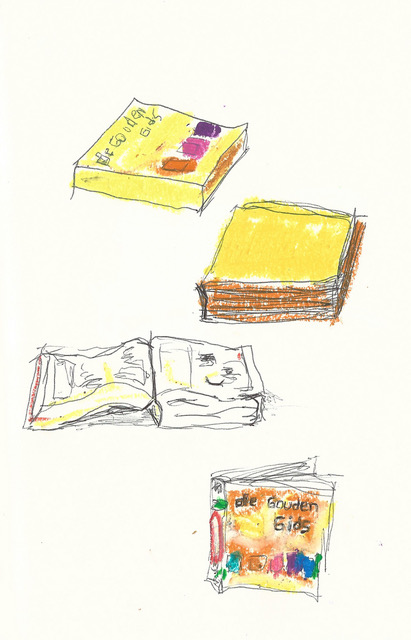 Gouden
Gids
Gouden
Gids